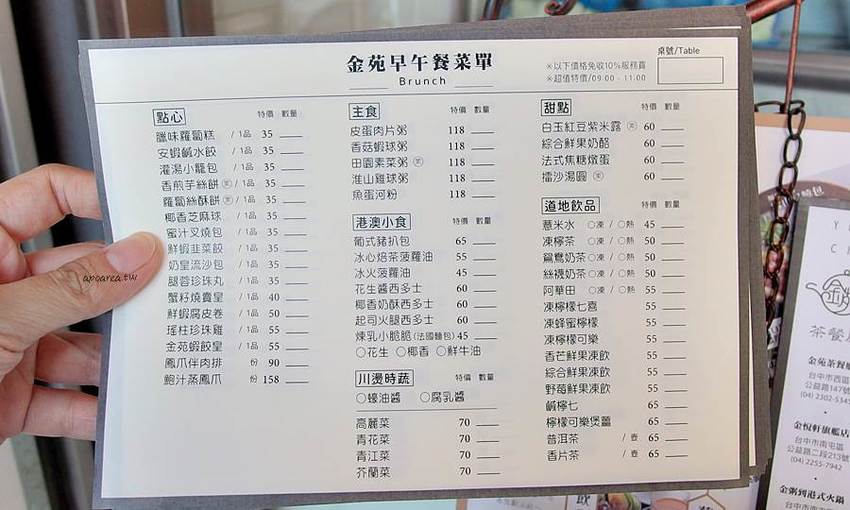 金苑早午餐菜單
Brunch
※以下價格免收10%服務費
※超值特價/09:00 - 11:00
桌號/Table
點心 特價 數量
臘味蘿蔔糕 / 1品 35
安蝦鹹水餃 / 1品 35
灌湯小籠包 / 1品 35
香煎芋絲餅 / 1品 35
蘿蔔絲酥餅 / 1品 35
椰香芝麻球 / 1品 35
蜜汁叉燒包 / 1品 35
鮮蝦韭菜餃 / 1品 35
奶皇流沙包 / 1品 35
腿蓉珍珠丸 / 1品 35
蟹籽燒賣皇 / 1品 40
鮮蝦腐皮卷 / 1品 50
瑤柱珍珠雞 / 1品 55
金苑蝦餃皇 / 1品 55
鳳爪伴肉排 份 90
鮑汁蒸鳳爪 份 158
主食 特價 數量
皮蛋肉片粥 118
香菇蝦球粥 118
田園素菜粥 118
淮山雞球粥 118
魚蛋河粉 118
港澳小食 特價 數量
葡式豬扒包 65
冰心焙茶菠蘿油 55
冰火菠蘿油 45
花生醬西多士 60
椰香奶酥西多士 60
起司火腿西多士 60
煉乳小脆脆(法國麵包) 45
○花生 ○椰香 ○鮮牛油
川燙時蔬 特價 數量
○蠔油醬 ○腐乳醬
高麗菜 70
青花菜 70
青江菜 70
芥蘭菜 70
甜點 特價 數量
白玉紅豆紫米露 60
綜合鮮果奶酪 60
法式焦糖燉蛋 60
擂沙湯圓 60
道地飲品 特價 數量
薏米水 ○凍 / ○熱 45
凍檸茶 ○凍 / ○熱 50
鴛鴦奶茶 ○凍 / ○熱 50
絲襪奶茶 ○凍 / ○熱 50
阿華田 ○凍 / ○熱 50
凍檸檬七喜 55
凍蜂蜜檸檬 55
凍檸檬可樂 55
香芒鮮果凍飲 55
綜合鮮果凍飲 55
野莓鮮果凍飲 55
鹹檸七 65
檸檬可樂煲薑 65
普洱茶 / 壺 65
香片茶 / 壺 65
apoarea.tw
金苑茶餐廳
台中市西區
公益路147號
(04) 2302-5345
金悅軒旗艦店
台中市南屯區
公益路二段213號
(04) 2255-7942
金粥到港式火鍋